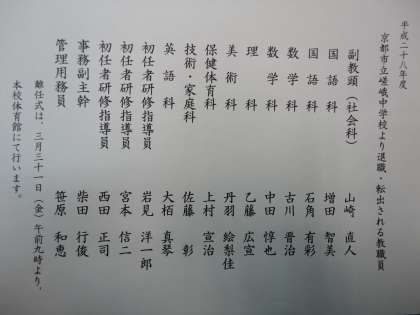 平成二十八年度
京都市立嵯峨中学校より退職・転出される教職員
副教頭（社会科） 山崎 直人
国語科 増田 智美
国語科 石角 有彩
数学科 古川 晋治
数学科 中田 惇也
理科 乙藤 広宣
美術科 丹羽 絵梨佳
保健体育科 上村 宣治
技術・家庭科 佐藤 彰
英語科 大栢 真琴
初任者研修指導員 岩見 洋一郎
初任者研修指導員 宮本 信二
初任者研修指導員 西田 正司
事務副主幹 柴田 行俊
管理用務員 笹原 和恵
離任式は、三月三十一日（金）午前九時より、
本校体育館にて行います。